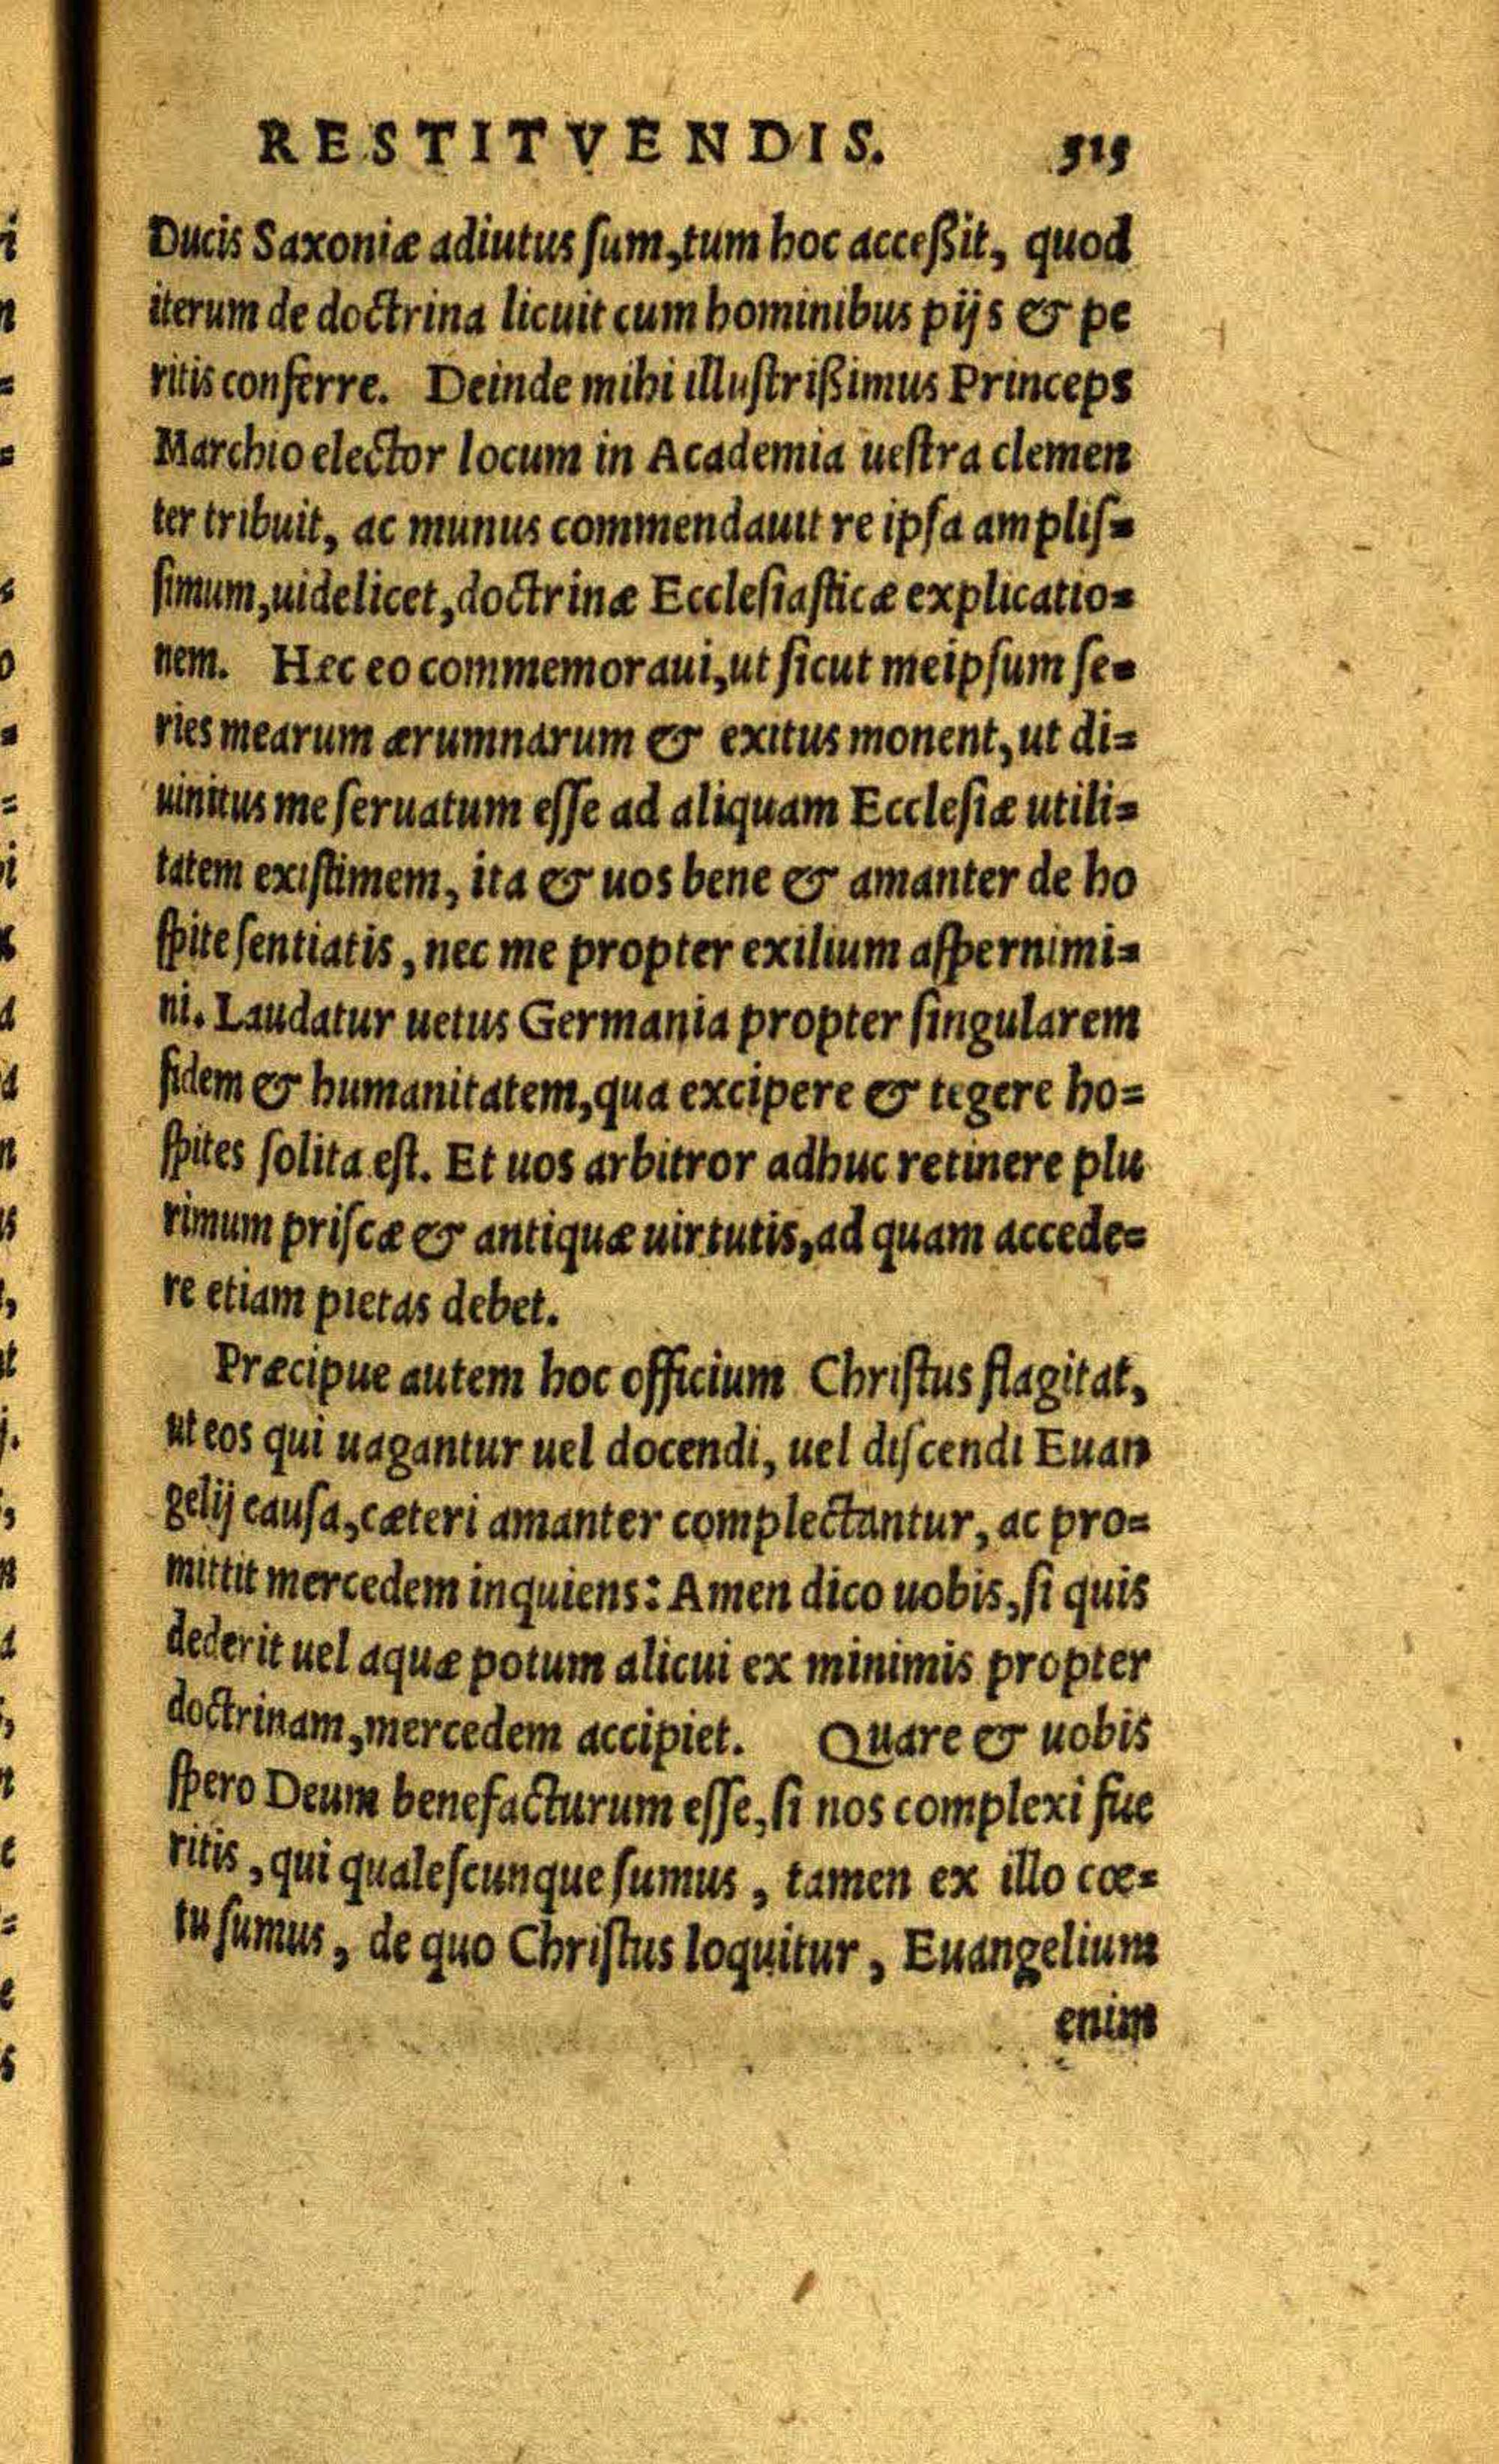 RESTITVENDIS. 515
Ducis Saxoniæ adiutus ſum, tum hoc acceßit, quod
iterum de doctrina licuit cum hominibus pijs & pe
ritis conferre. Deinde mihi illuſtrißimus Princeps
Marchio elector locum in Academia ueſtra clemen
ter tribuit, ac munus commendauit re ipſa ampliſ=
ſimum, uidelicet, doctrinæ Eccleſiaſticæ explicatio=
nem. Hæc eo commemoraui, ut ſicut meipſum ſe=
ries mearum ærumnarum & exitus monent, ut di=
uinitus me ſeruatum eſſe ad aliquam Eccleſiæ utili=
tatem exiſtimem, ita & uos bene & amanter de ho
ſpite ſentiatis, nec me propter exilium aſpernimi=
ni. Laudatur uetus Germania propter ſingularem
fidem & humanitatem, qua excipere & tegere ho=
ſpites ſolita eſt. Et uos arbitror adhuc retinere plu
rimum priſcæ & antiquæ uirtutis, ad quam accede=
re etiam pietas debet.
Præcipue autem hoc officium Chriſtus flagitat,
ut eos qui uagantur uel docendi, uel diſcendi Euan
gelij cauſa, cæteri amanter complectantur, ac pro=
mittit mercedem inquiens: Amen dico uobis, ſi quis
dederit uel aquæ potum alicui ex minimis propter
doctrinam, mercedem accipiet. Quare & uobis
ſpero Deum benefacturum eſſe, ſi nos complexi fue
ritis, qui qualeſcunque ſumus, tamen ex illo cœ=
tu ſumus, de quo Chriſtus loquitur, Euangelium
enim